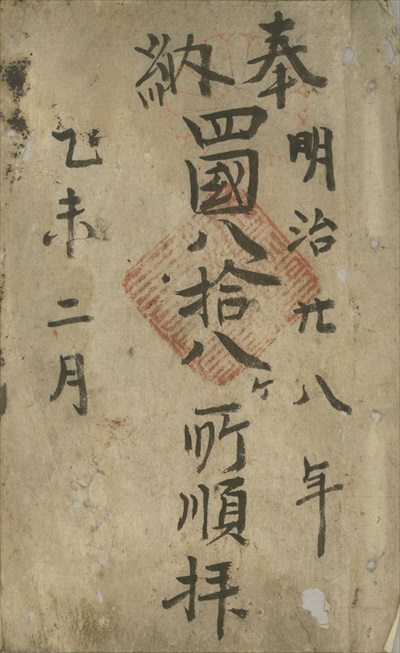 奉納
明治廿八年
四國八拾八ヶ所順拝
乙未二月